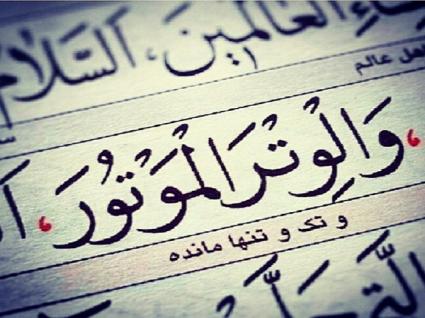 الْعالَمينَ، اَلسَّلامُ
هل عالم
، وَالْوِتْرَ الْمَوْتُورَ،
و تک و تنها مانده
الَّتي حَلَّتْ